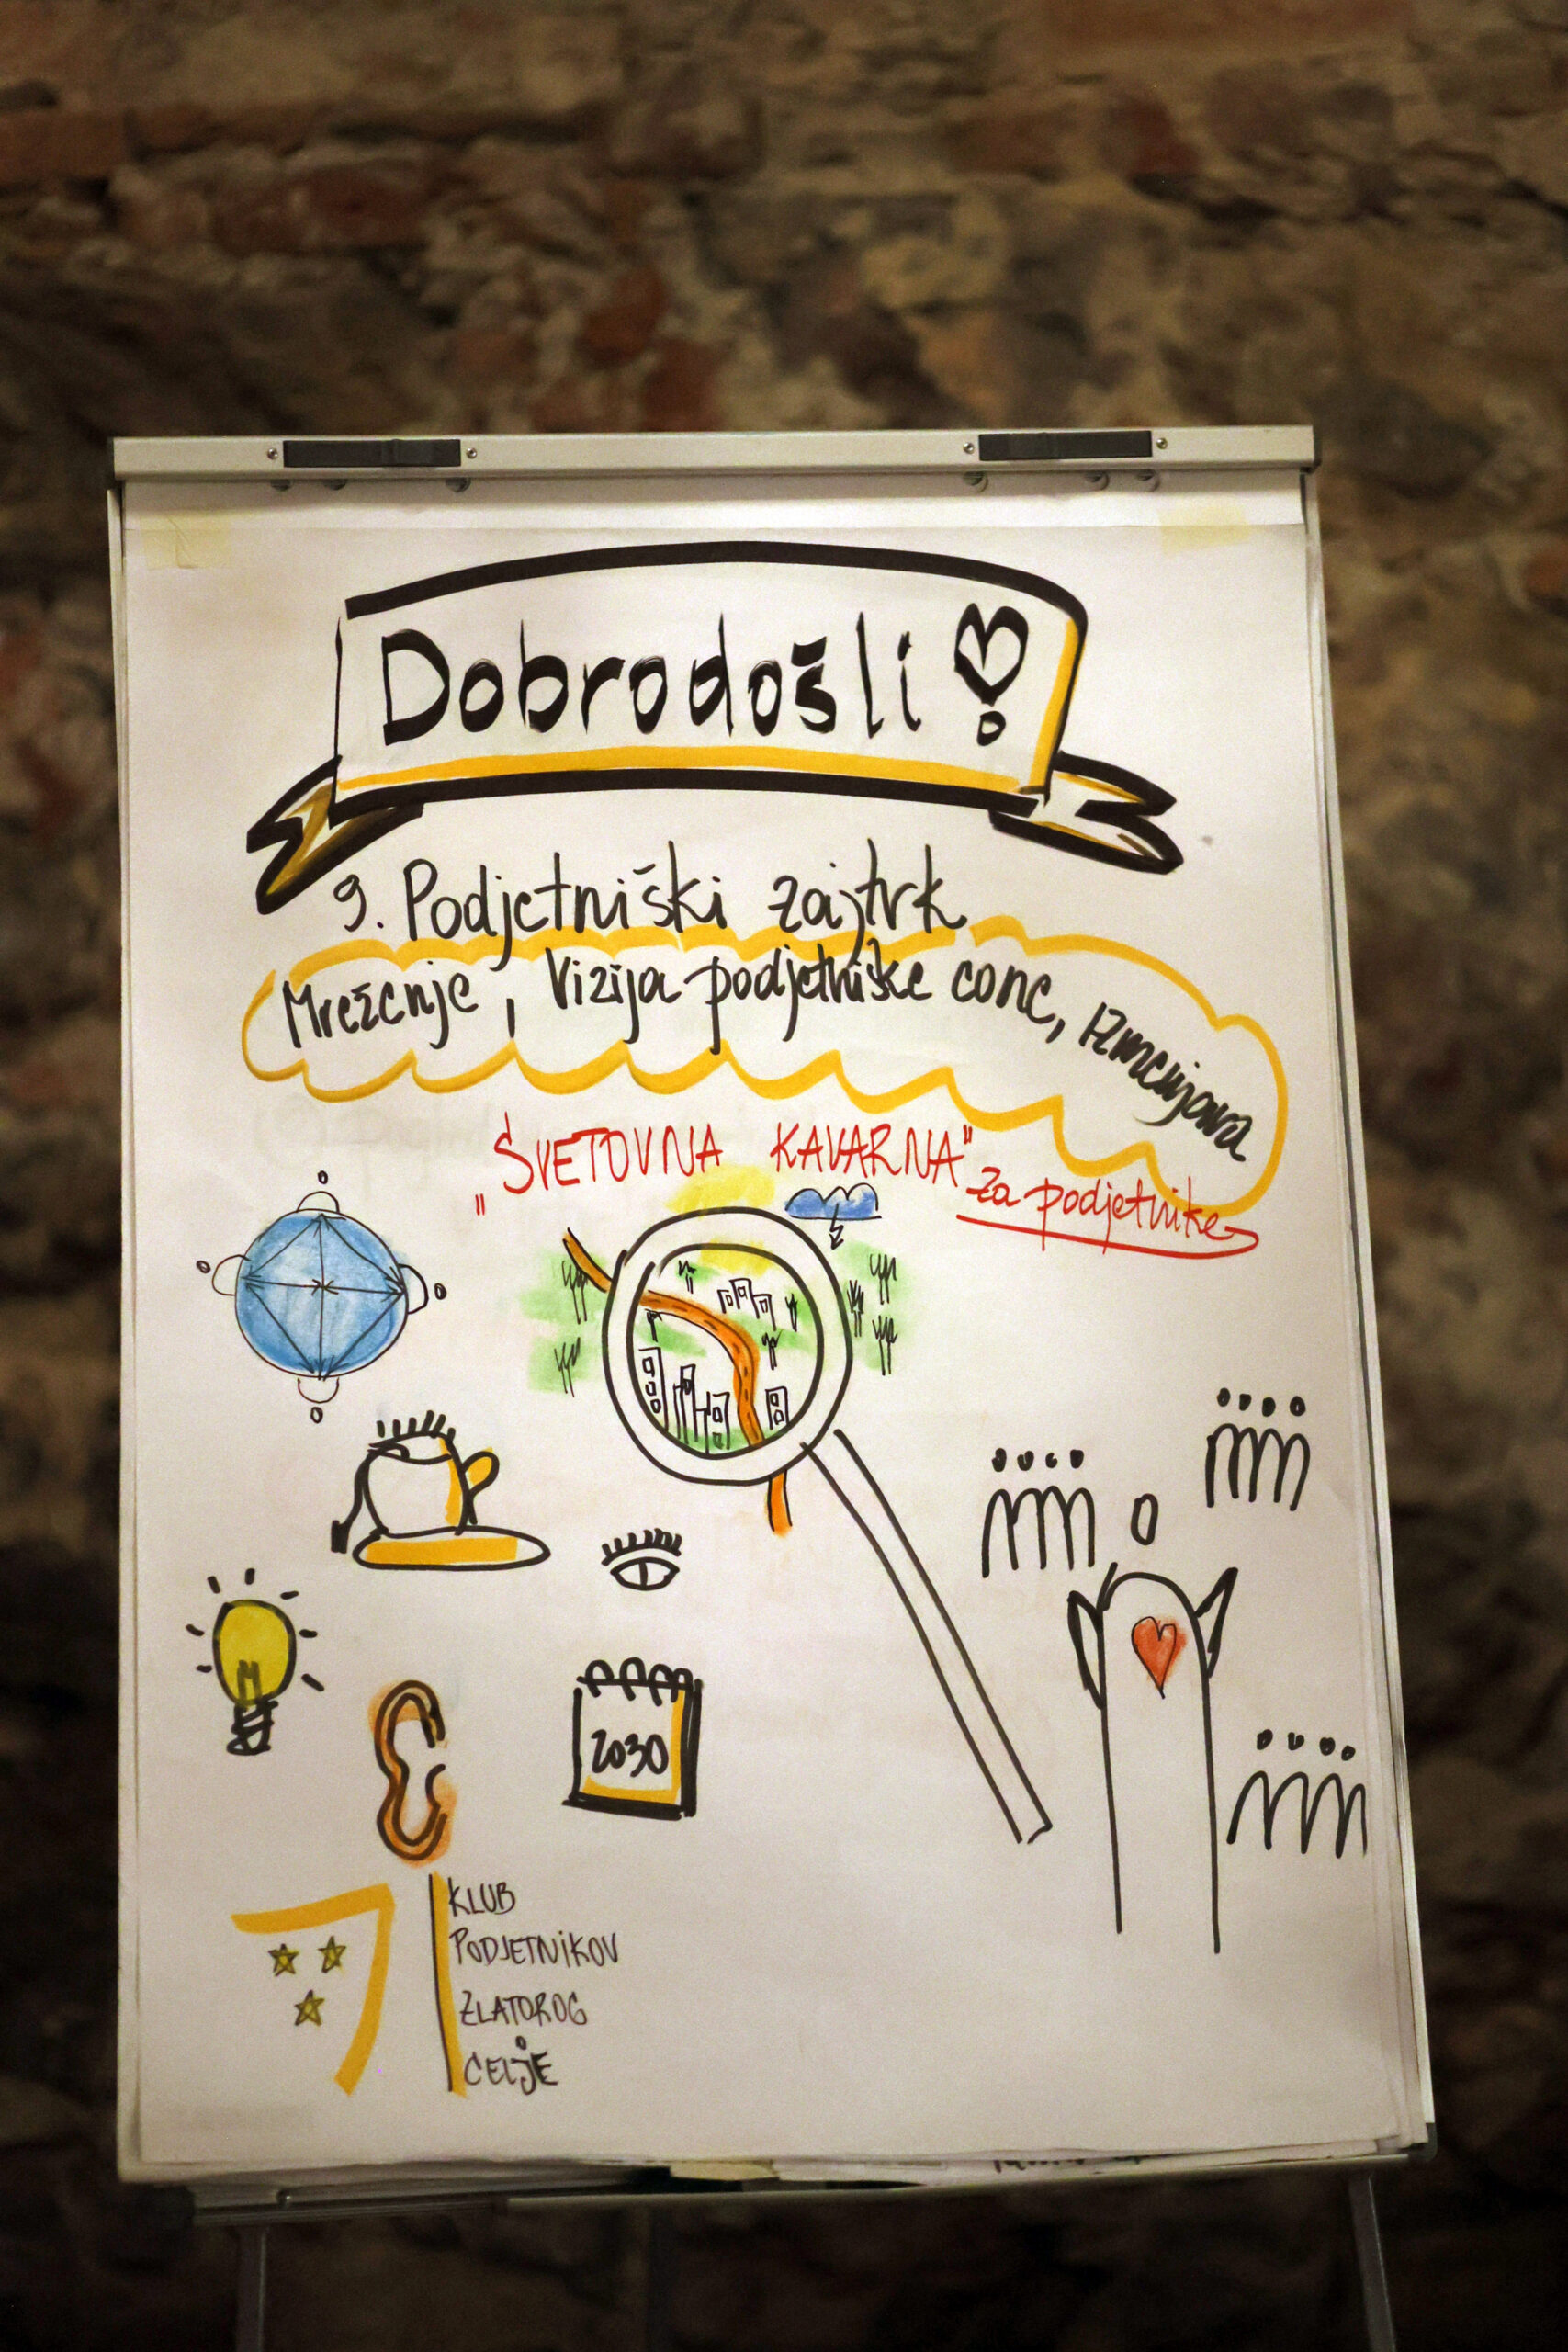 Dobrodošli!
9. Podjetniški zajtrk
Mreženje, Vizija podjetniške cone, izmenjava
"SVETOVNA KAVARNA"
za podjetnike
2030
KLUB
PODJETNIKOV
ZLATOROG
CELJE